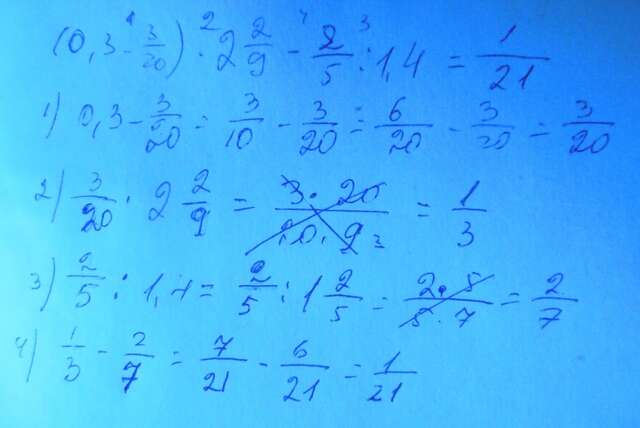 (0,3 - 3/20) · 2 2/9 - 2/5 : 1,4 = 1/21
1) 0,3 - 3/20 = 3/10 - 3/20 = 6/20 - 3/20 = 3/20
2) 3/20 · 2 2/9 = 3·20/20·9 3 = 1/3
3) 2/5 : 1,4 = 2/5 : 1 2/5 = 2·5/5·7 = 2/7
4) 1/3 - 2/7 = 7/21 - 6/21 = 1/21